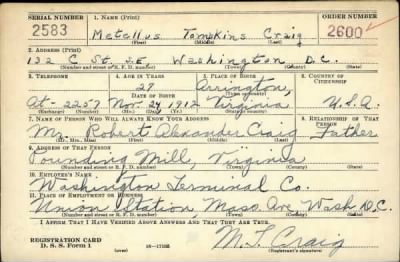 SERIAL NUMBER 1. NAME (Print) ORDER NUMBER
2583 Metellus Tompkins Craig 2600
(First) (Middle) (Last)
2. ADDRESS (Print)
132 C St. S.E Washington D.C.
(Number and street or R. F. D. number) (Town) (County) (State)
3. TELEPHONE 4. AGE IN YEARS 5. PLACE OF BIRTH 6. COUNTRY OF CITIZENSHIP
27 Arrington,
DATE OF BIRTH (Town or county)
At-2257 Nov. 24 1912 Virginia U.S.A.
(Exchange) (Number) (Mo.) (Day) (Yr.) (State or country)
7. NAME OF PERSON WHO WILL ALWAYS KNOW YOUR ADDRESS 8. RELATIONSHIP OF THAT PERSON
Mr. Robert Alexander Craig Father
(Mr., Mrs., Miss) (First) (Middle) (Last)
9. ADDRESS OF THAT PERSON
Pounding Mill, Virginia
(Number and street or R. F. D. number) (Town) (County) (State)
10. EMPLOYER'S NAME
Washington Terminal Co.
11. PLACE OF EMPLOYMENT OR BUSINESS
Union Station, Mass. Ave Wash D.C.
(Number and street or R. F. D. number) (Town) (County) (State)
I AFFIRM THAT I HAVE VERIFIED ABOVE ANSWERS AND THAT THEY ARE TRUE.
REGISTRATION CARD
D. S. S. Form 1 (over) M. T. Craig
(Registrant's signature)